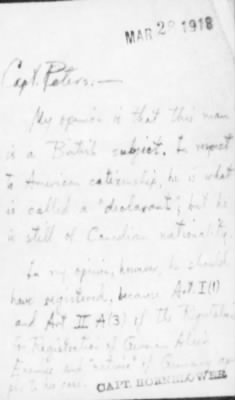 MAR 28 1918
Capt. Peters:—
My opinion is that this man
is a British subject. In respect
to American citizenship, he is what
is called a "declarant", but he
is still of Canadian nationality.
In my opinion, however, he should
have registered, because Art. I (1)
and Art II A(3) of the Regulations
for Registration of German Alien
Enemies and "natives" of Germany
to his case.
CAPT. HORNBLOWER